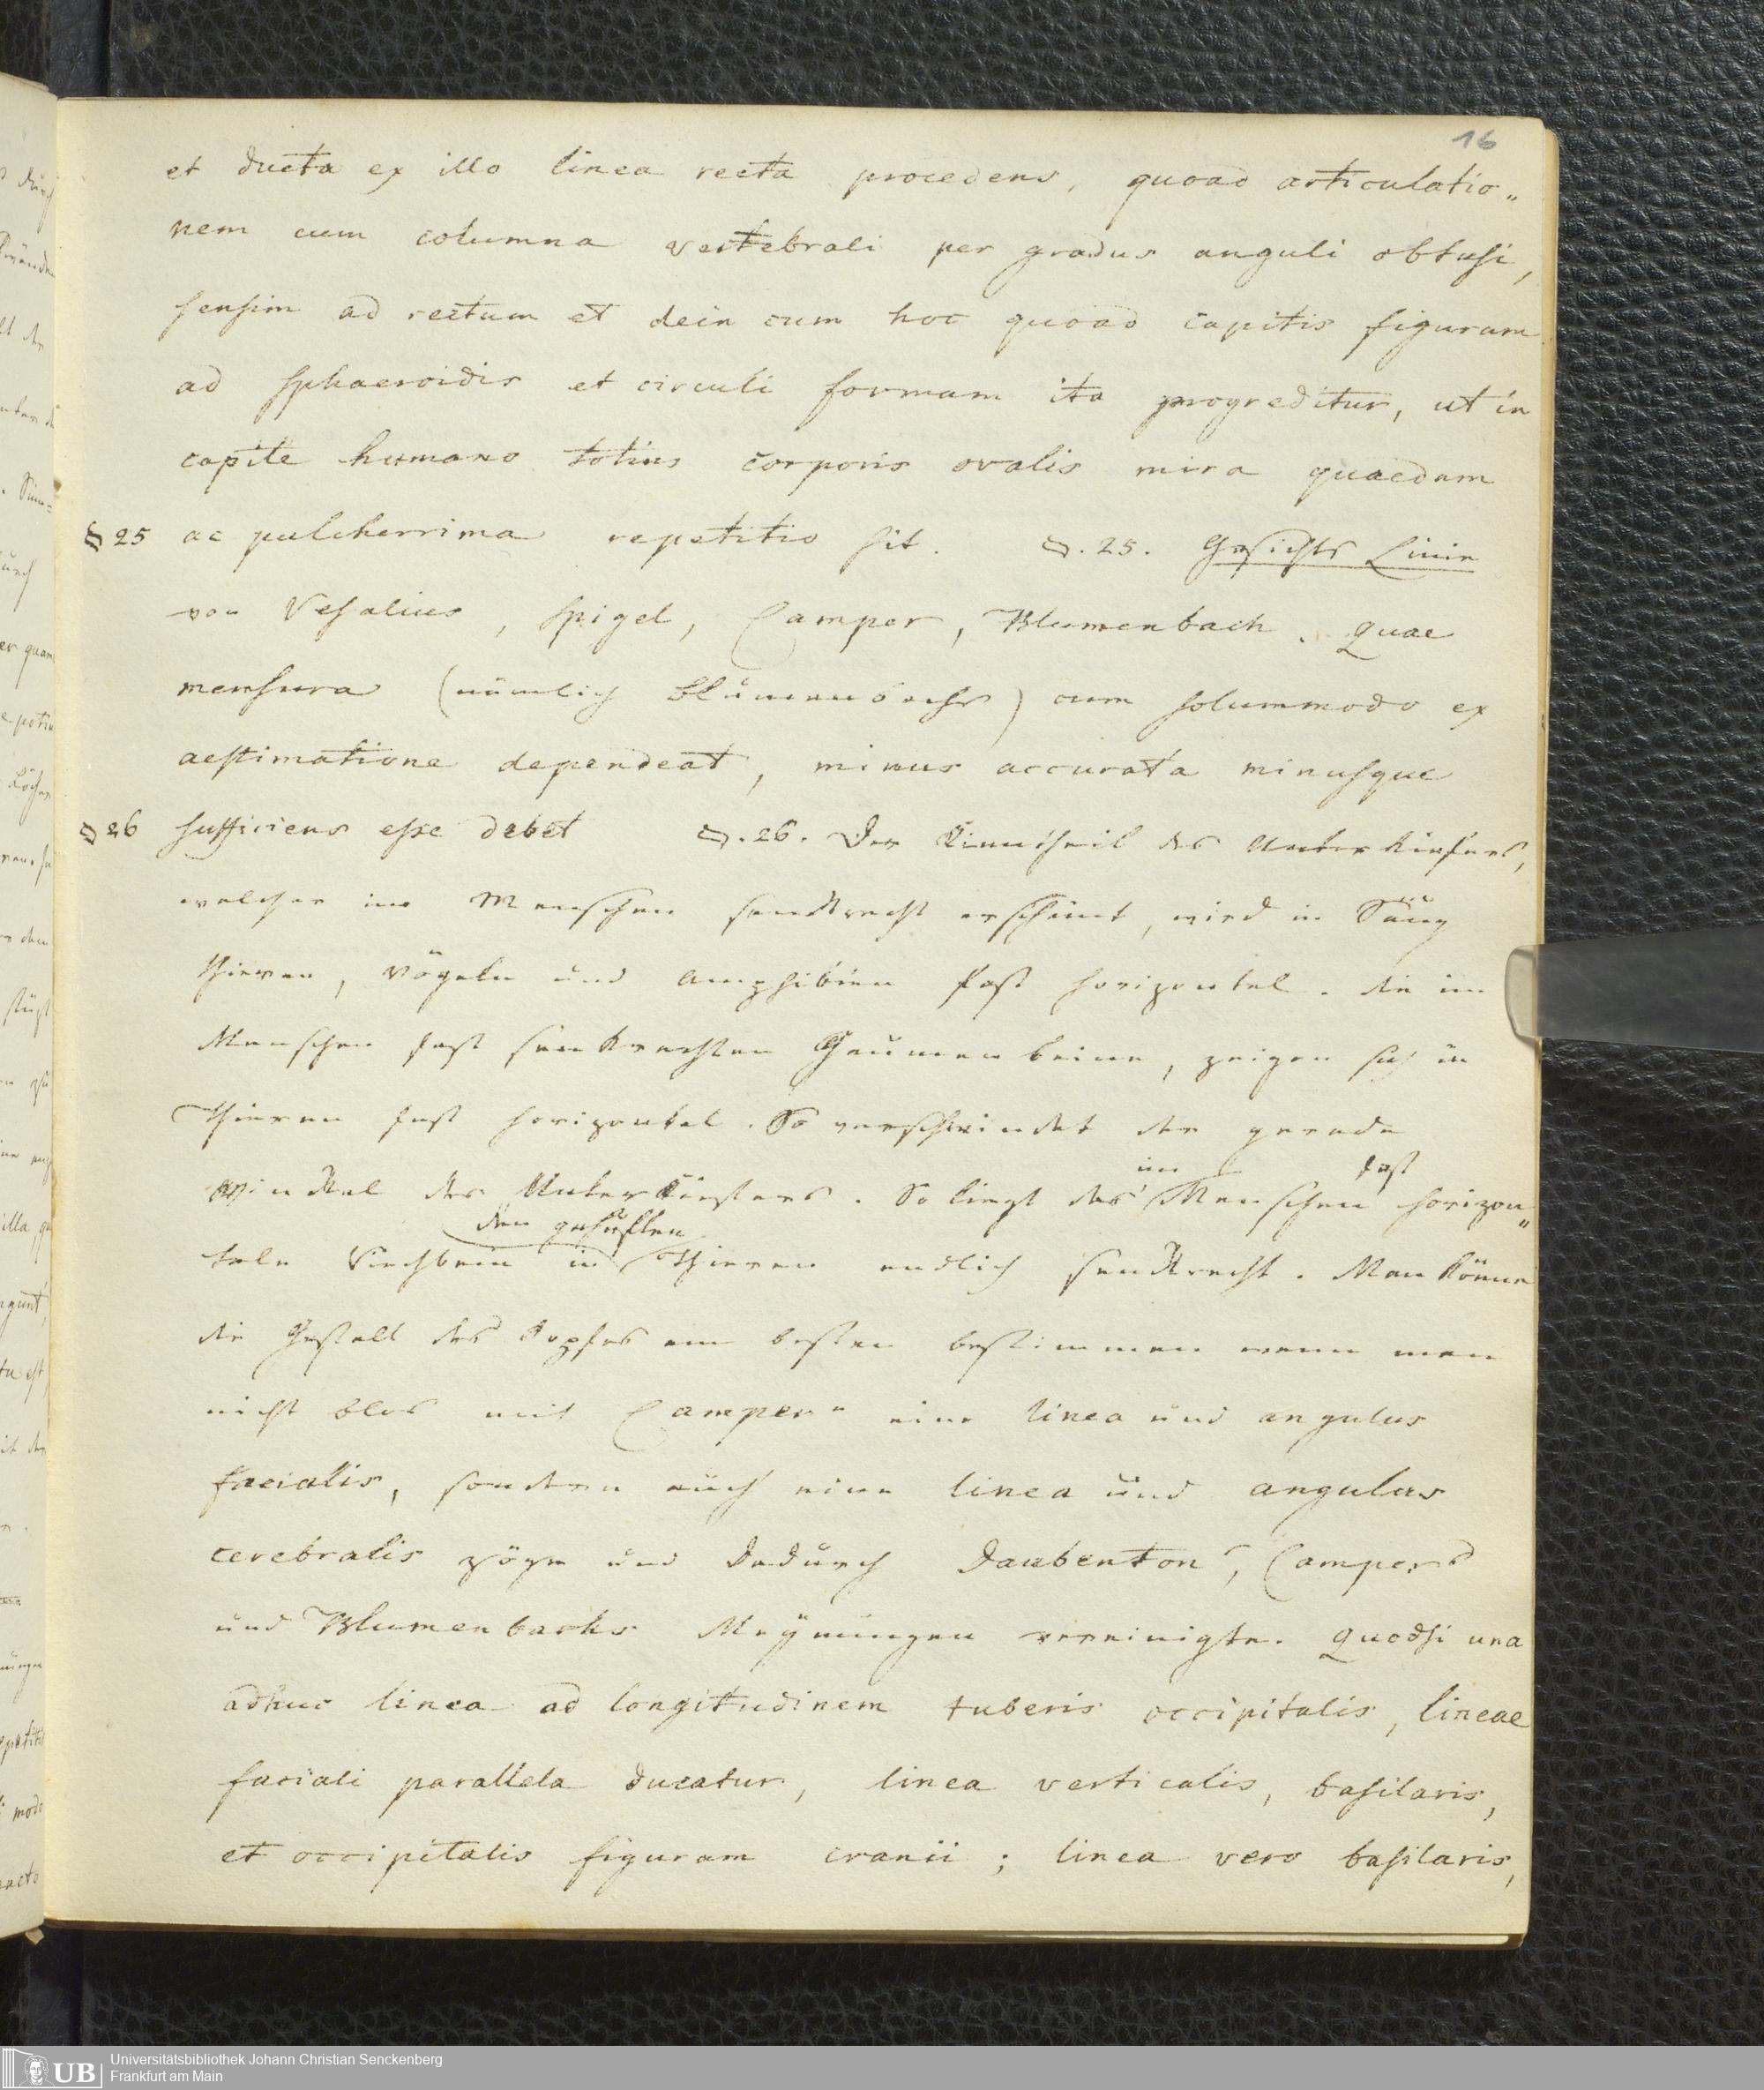 16
et ducta ex illo linea recta procedens, quoad articulatio„
nem cum columna vertebrali per gradus anguli obtusi,
sensim ad rectum et dein cum hoc quoad capitis figuram
ad sphaeroidis et circuli formam ita progreditur, ut in
capite humano totius corporis ovalis mira quaedam
§ 25 ac pulcherrima repetitio sit. §. 25. Gesichts Linie
von Vesalius, Spigel, Camper, Blumenbach. Quae
mensura (nämlich Blumenbachs) cum solummodo ex
aestimatione dependeat, minus accurata minusque
§ 26 sufficiens esse debet §. 26. Der Kinntheil des Unterkiefers,
welcher im Menschen senkrecht erscheint, wird in Säug
thieren, Vögeln und Amphibien fast horizontal. die im
Menschen fast senkrechten Gaumenbeine, zeigen sich in
Thieren fast horizontal. So verschwindet der gerade
im fast
Winkel des Unterkiefers. So liegt das Menschen horizon„
den gehuften
tale Siechbein in Thieren endlich senkrecht. Man könne
die Gestalt des Kopfes am besten bestimmen wenn man
nicht blos mit Camper eine linea und angulus
facialis, sondern auch eine linea und angulus
cerebralis zöge und dadurch Daubenton, Campers
und Blumenbachs Meÿnungen vereinigte. Quodsi una
adhuc linea ad longitudinem tuberis occipitalis, lineae
faciali parallela ducatur, linea verticalis, basilaris,
et occipitalis figuram cranii; linea vero basilaris,
Universitätsbibliothek Johann Christian Senckenberg
UB Frankfurt am Main